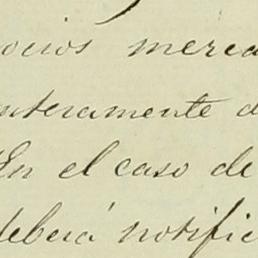 ocios merca
nteramente d
En el caso de
deberá notific